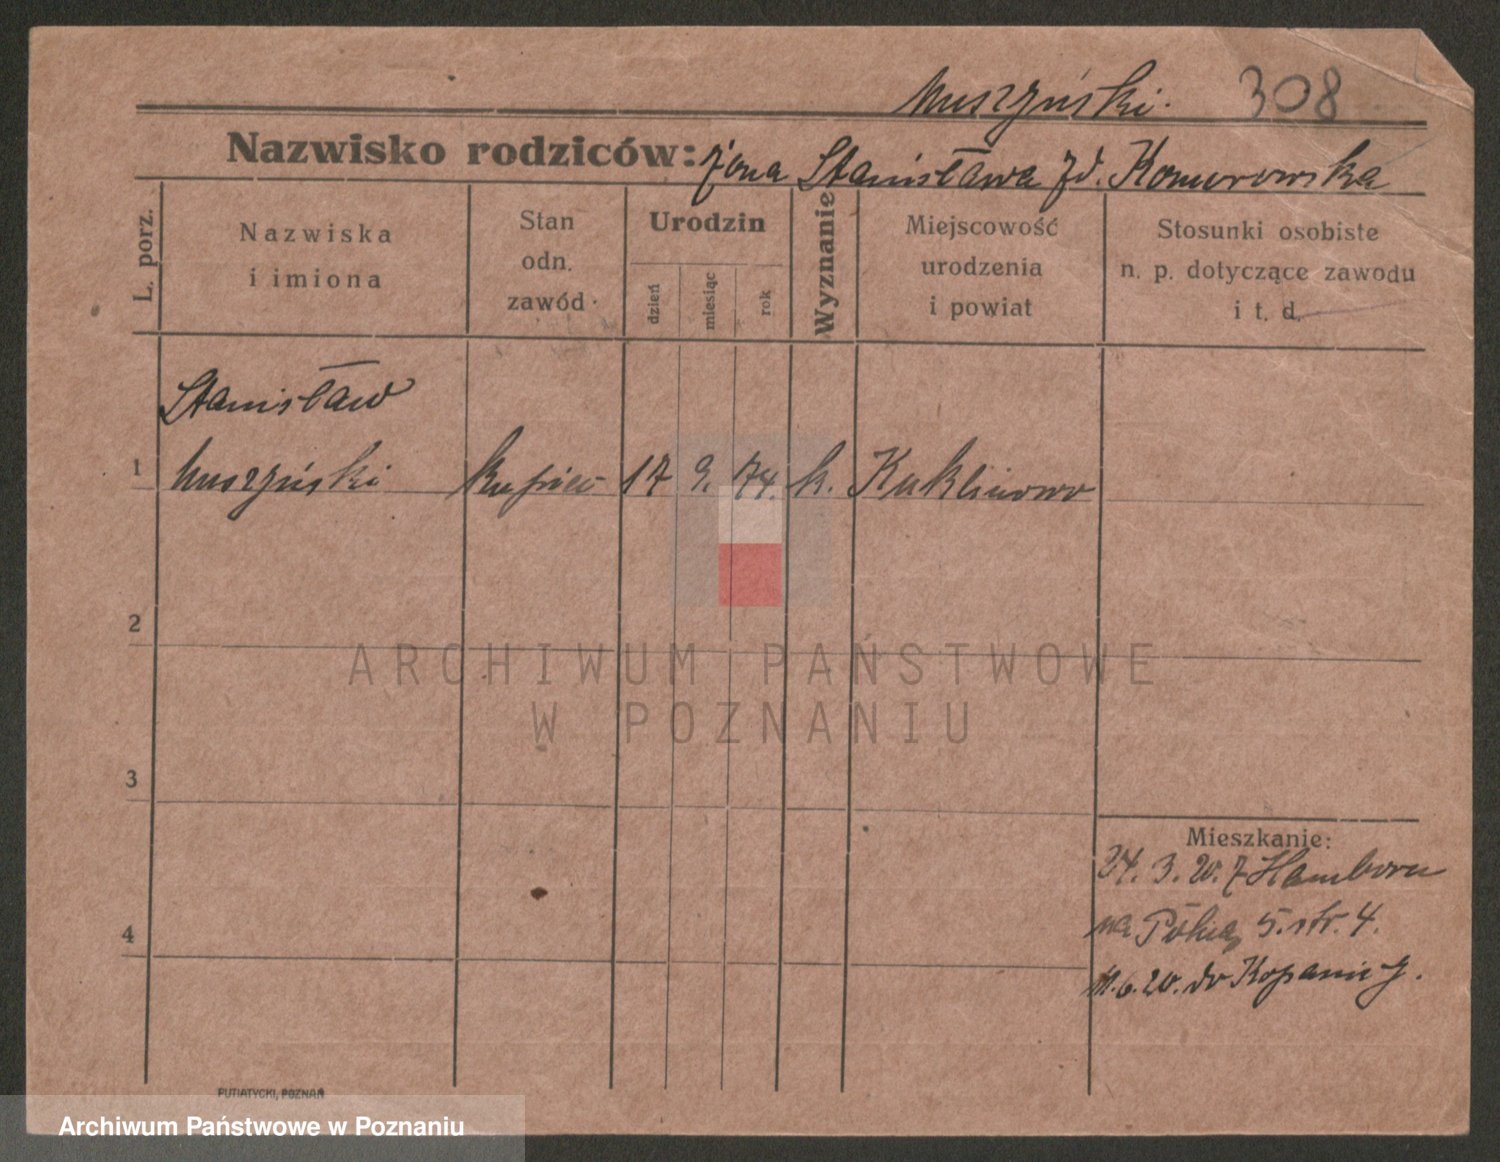 Muszyński. 308
Nazwisko rodziców: żona Stanisława zd. Komorowska
L. porz.
Nazwiska
i imiona
Stan
odn.
zawód
Urodzin
dzień
miesiąc
rok
Wyznanie
Miejscowość
urodzenia
i powiat
Stosunki osobiste
n. p. dotyczące zawodu
i t. d.
Stanisław
1 Muszyński kupiec 17 9. 74. k. Kuklinowo
2
ARCHIWUM PAŃSTWOWE
W POZNANIU
3
Mieszkanie:
24. 3. 20. z Hamborn
4
na 5. str. 4.
11.6.20. do Kopanicy.
PUTIATYCKI, POZNAŃ
Archiwum Państwowe w Poznaniu